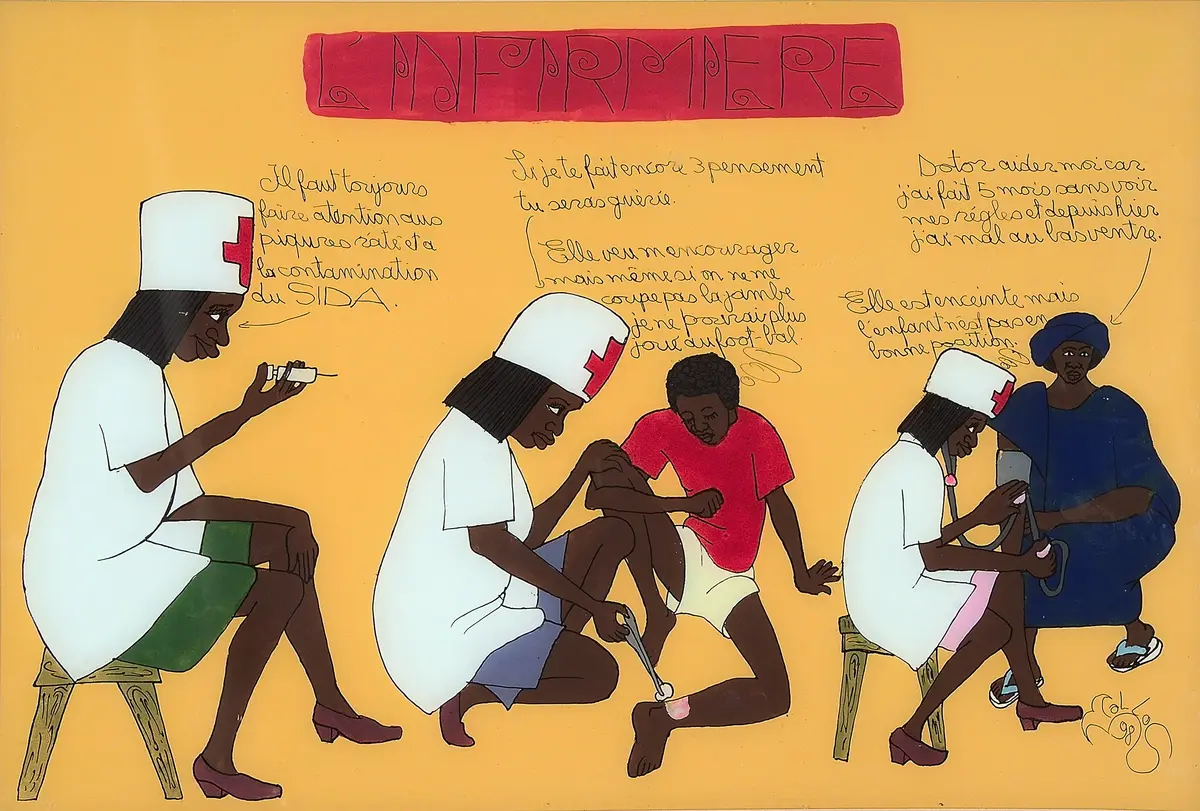 L'INFIRMIERE
Il faut toujours
faire atention aus
piqures raté et a
la contamination
du SIDA.
Si je te fait encore 3 pensement
tu seras guérie.
Elle veu m'encourager
mais même si on ne me
coupe pas la jambe
je ne pourai plus
joué au foot-bal.
Dotor aider moi car
j'ai fait 5 mois sans voir
mes règles et depuis hier
j'ai mal au bas ventre.
Elle est enceinte mais
l'enfant n'est pas en
bonne position.